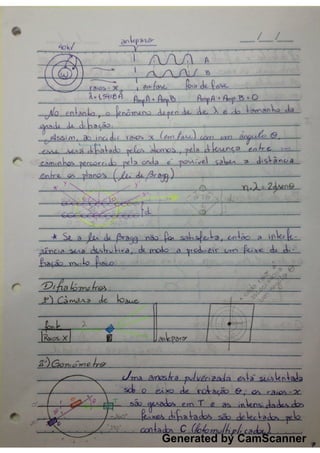 anteparo
40kV
A
B
raios-x em fase fora de fase
λ=1,5418Å AmpA+AmpB AmpA+AmpB=0
No entanto, o fenômeno depende de λ e do tamanho da
grade de difração.
Assim, ao incidir raios x (em fase) com um ângulo θ,
esse será difratado pelos átomos, pela diferença entre
caminhos percorrido pela onda é possível saber a distância
entre os planos (Lei de Bragg)
n.λ = 2dsenθ
d
* Se a Lei de Bragg não for satisfeita, então a interfe-
rência será destrutiva, de modo a produzir um feixe de di-
fração muito fraco.
Difratômetros
1º) Câmara de Laue
fonte λ
Raios X anteparo
2º) Goniômetro
Uma amostra pulverizada está sustentada
sob o eixo de rotação θ, os raios-x
são gerados em T e as intensidades dos
feixes difratados são detectados pelo
contador C (fotomultiplicador)
Generated by CamScanner